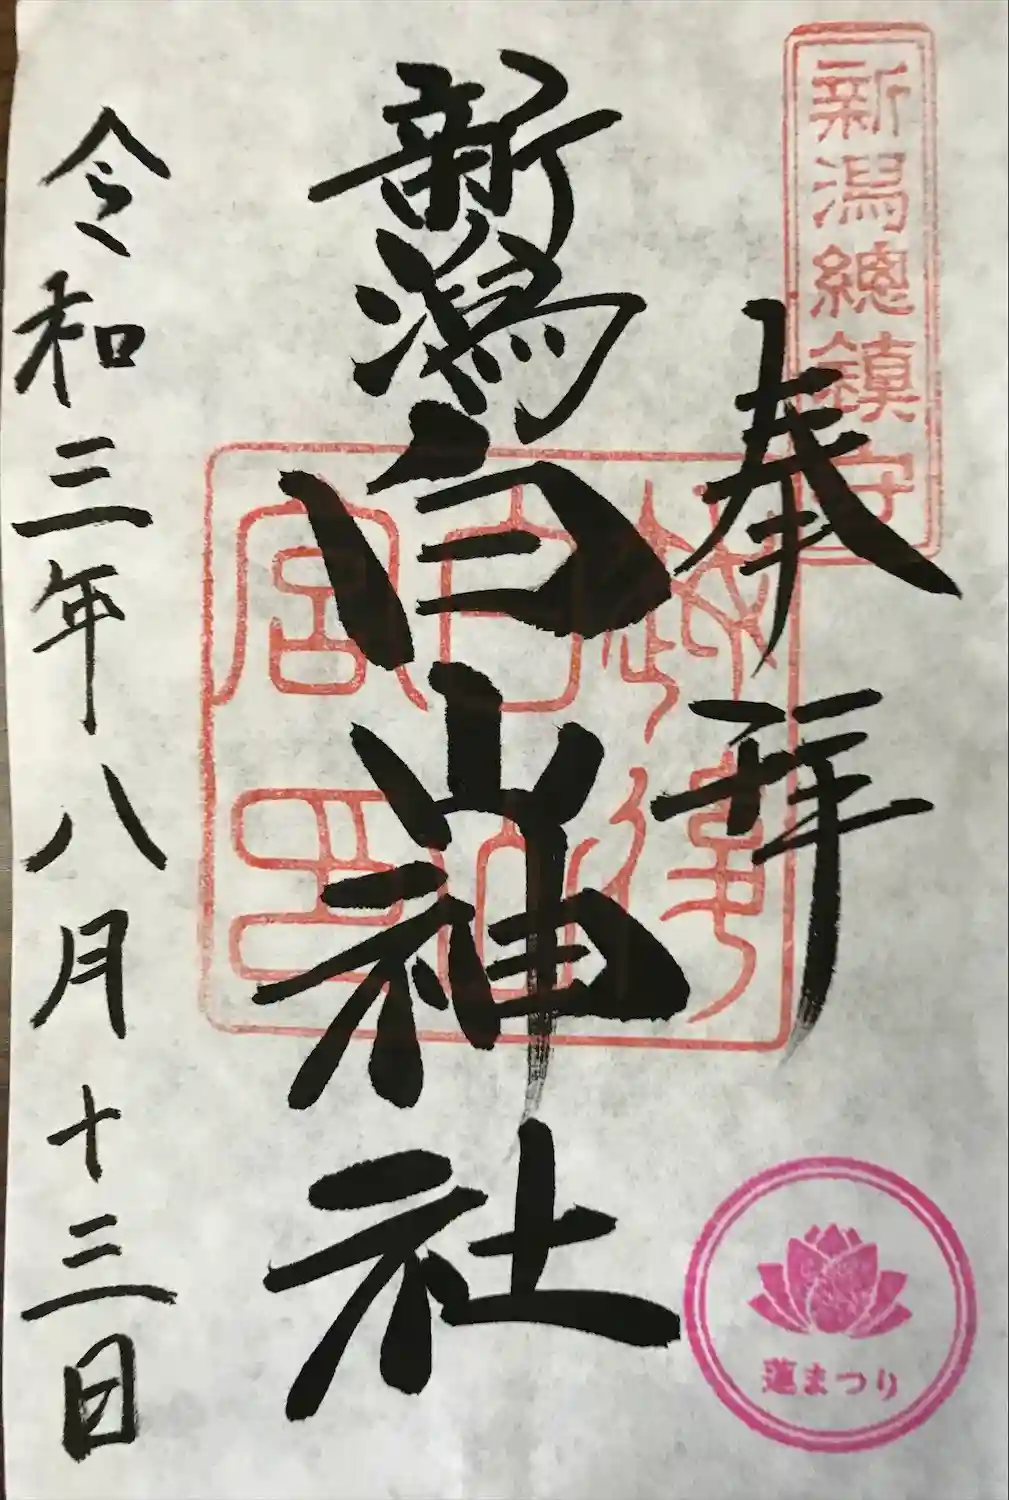 新潟總鎮守
奉拝
新潟白山神社
越後
白山
宮印
令和三年八月十三日
蓮まつり